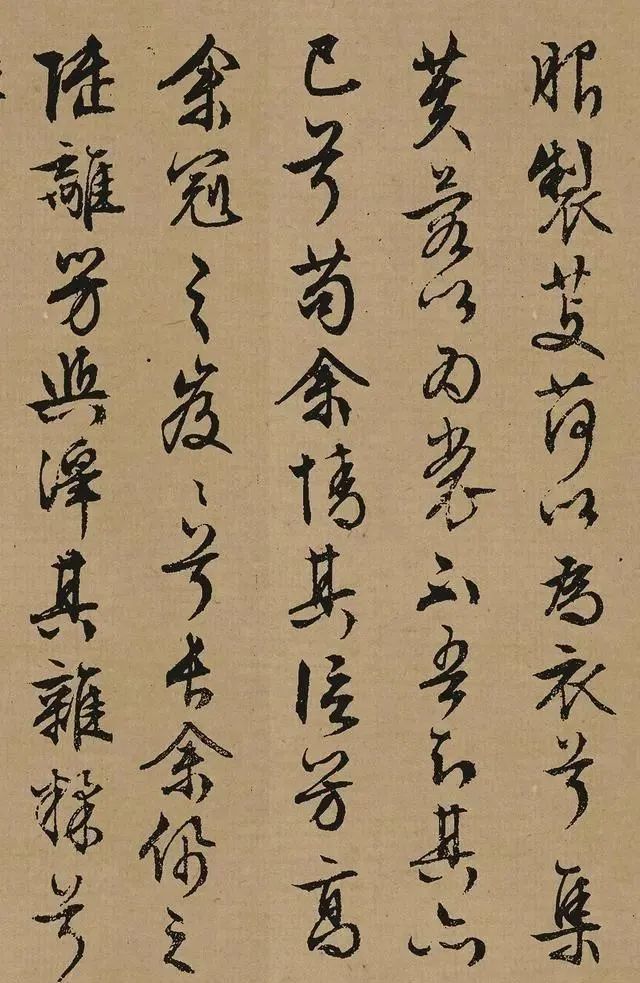 服製芰荷以為衣兮集
芙蓉以為裳不吾知其亦
已兮苟余情其信芳高
余冠之岌々兮長余佩之
陸離芳與澤其雜糅兮